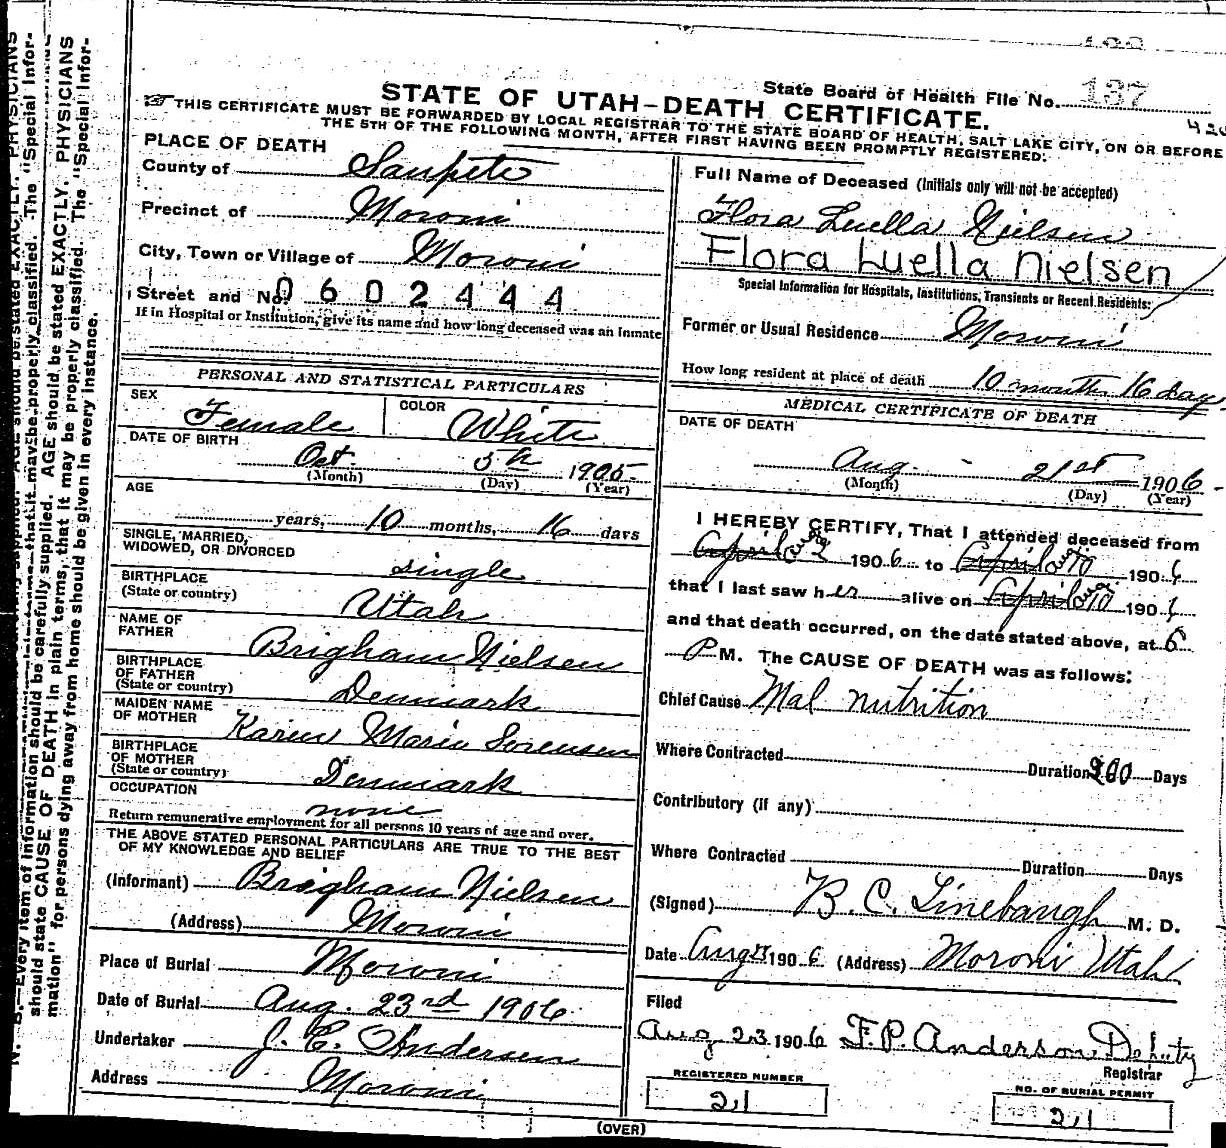 State Board of Health File No. 137
STATE OF UTAH—DEATH CERTIFICATE.
THIS CERTIFICATE MUST BE FORWARDED BY LOCAL REGISTRAR TO THE STATE BOARD OF HEALTH, SALT LAKE CITY, ON OR BEFORE
THE 5TH OF THE FOLLOWING MONTH, AFTER FIRST HAVING BEEN PROMPTLY REGISTERED.
PLACE OF DEATH
County of Sanpete
Precinct of Moroni
City, Town or Village of Moroni
Street and No. 0602444
If in Hospital or Institution, give its name and how long deceased was an inmate
PERSONAL AND STATISTICAL PARTICULARS
SEX Female COLOR White
DATE OF BIRTH
Oct 5th 1905
(Month) (Day) (Year)
AGE
years, 10 months, 16 days
SINGLE, MARRIED,
WIDOWED, OR DIVORCED
single
BIRTHPLACE
(State or country) Utah
NAME OF
FATHER Brigham Nielsen
BIRTHPLACE
OF FATHER
(State or country) Denmark
MAIDEN NAME
OF MOTHER Karen Marie Sorensen
BIRTHPLACE
OF MOTHER
(State or country) Denmark
OCCUPATION
none
Return remunerative employment for all persons 10 years of age and over.
THE ABOVE STATED PERSONAL PARTICULARS ARE TRUE TO THE BEST
OF MY KNOWLEDGE AND BELIEF
(Informant) Brigham Nielsen
(Address) Moroni
Place of Burial Moroni
Date of Burial Aug. 23rd 1906
Undertaker J. E. Andersen
Address Moroni
Full Name of Deceased (Initials only will not be accepted)
Flora Luella Nielsen
Flora Luella Nielsen
Special Information for Hospitals, Institutions, Transients or Recent Residents:
Former or Usual Residence Moroni
How long resident at place of death 10 months 16 days
MEDICAL CERTIFICATE OF DEATH
DATE OF DEATH
Aug. 21st 1906
(Month) (Day) (Year)
I HEREBY CERTIFY, That I attended deceased from
April Aug 2 1906 to April Aug 10 1906
that I last saw her alive on April Aug 10 1906
and that death occurred, on the date stated above, at 6
P M. The CAUSE OF DEATH was as follows:
Chief Cause Mal nutrition
Where Contracted Duration Days
Contributory (if any)
Where Contracted Duration Days
(Signed) B. C. Linebaugh M. D.
Date Aug 1906 (Address) Moroni Utah
Filed
Aug 23 1906 F. P. Anderson Deputy
Registrar
REGISTERED NUMBER
21
NO. OF BURIAL PERMIT
21
(OVER)
should state CAUSE OF DEATH in plain terms, that it may be properly classified. The "Special Infor-
mation" for persons dying away from home should be given in every instance.